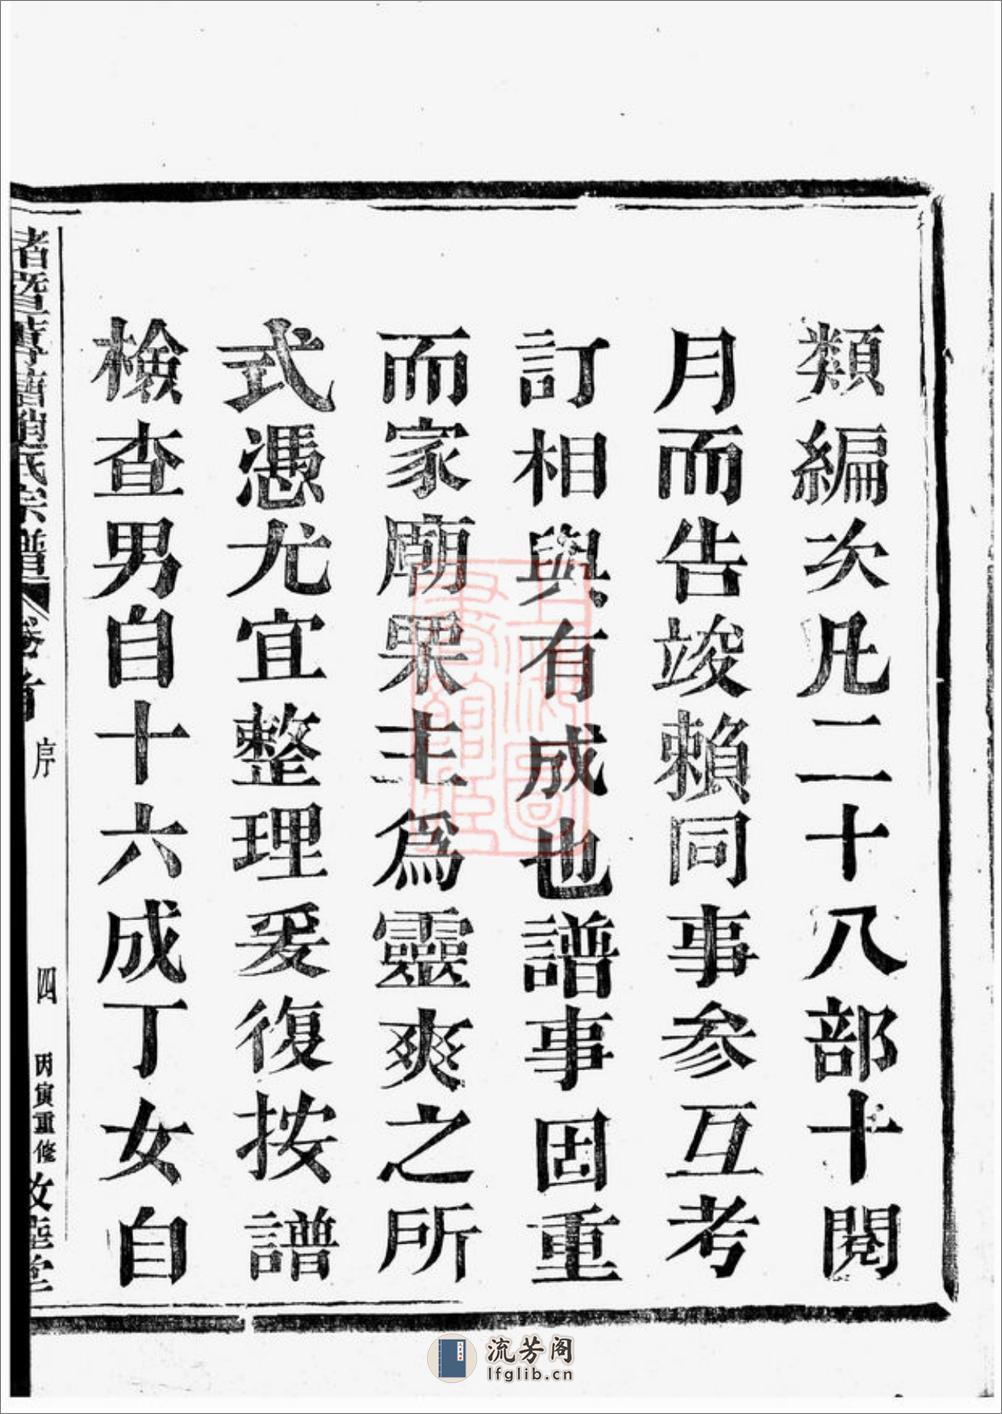 類編次凡二十八部十閱
月而告竣賴同事參互考
訂相與有成也譜事固重
而家廟栗主爲靈爽之所
式憑尤宜整理爰復按譜
檢查男自十六成丁女自
趙氏宗譜
卷首
序
四
丙寅重修
上海圖書館藏
流芳阁
lfglib.cn